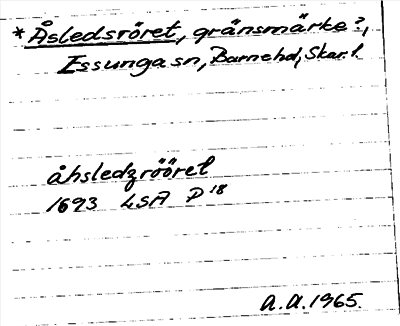 *Åsledsröret, gränsmärke?,
Essunga sn, Barnehd, Skar. l.
åhsledzrööret
1693 LSA P18
A.A. 1965.